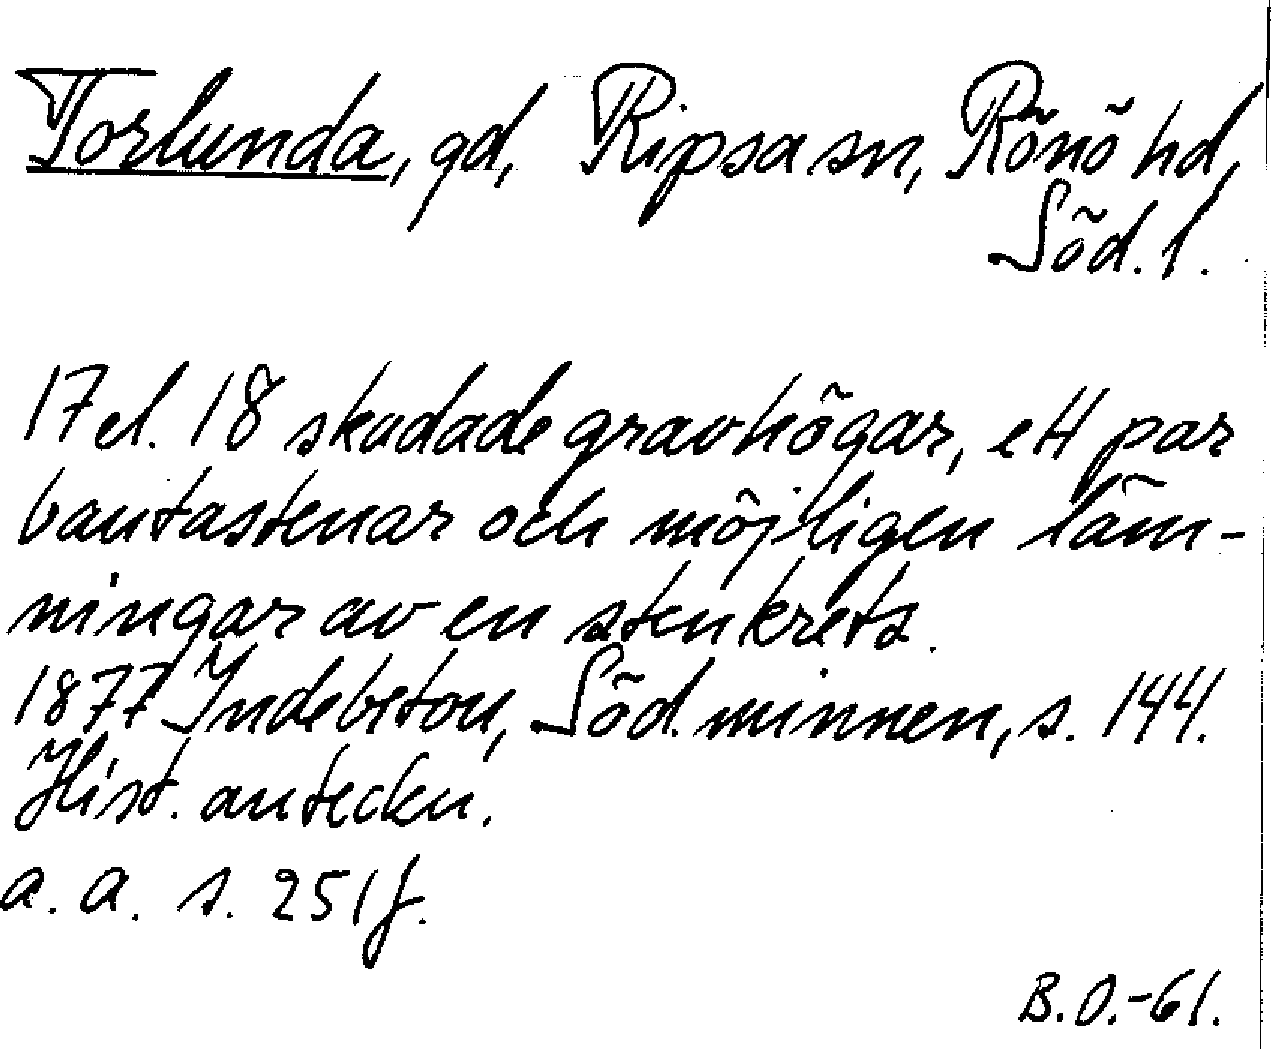 Torlunda, gd, Ripsa sn, Rönö hd,
Söd. l.
17 el. 18 skadade gravhögar, ett par
bautastenar och möjligen läm-
ningar av en stenkrets.
1877 Indebetou, Söd. minnen, s. 144.
Hist. anteckn.
a. a. s. 251 f.
B.O.-61.